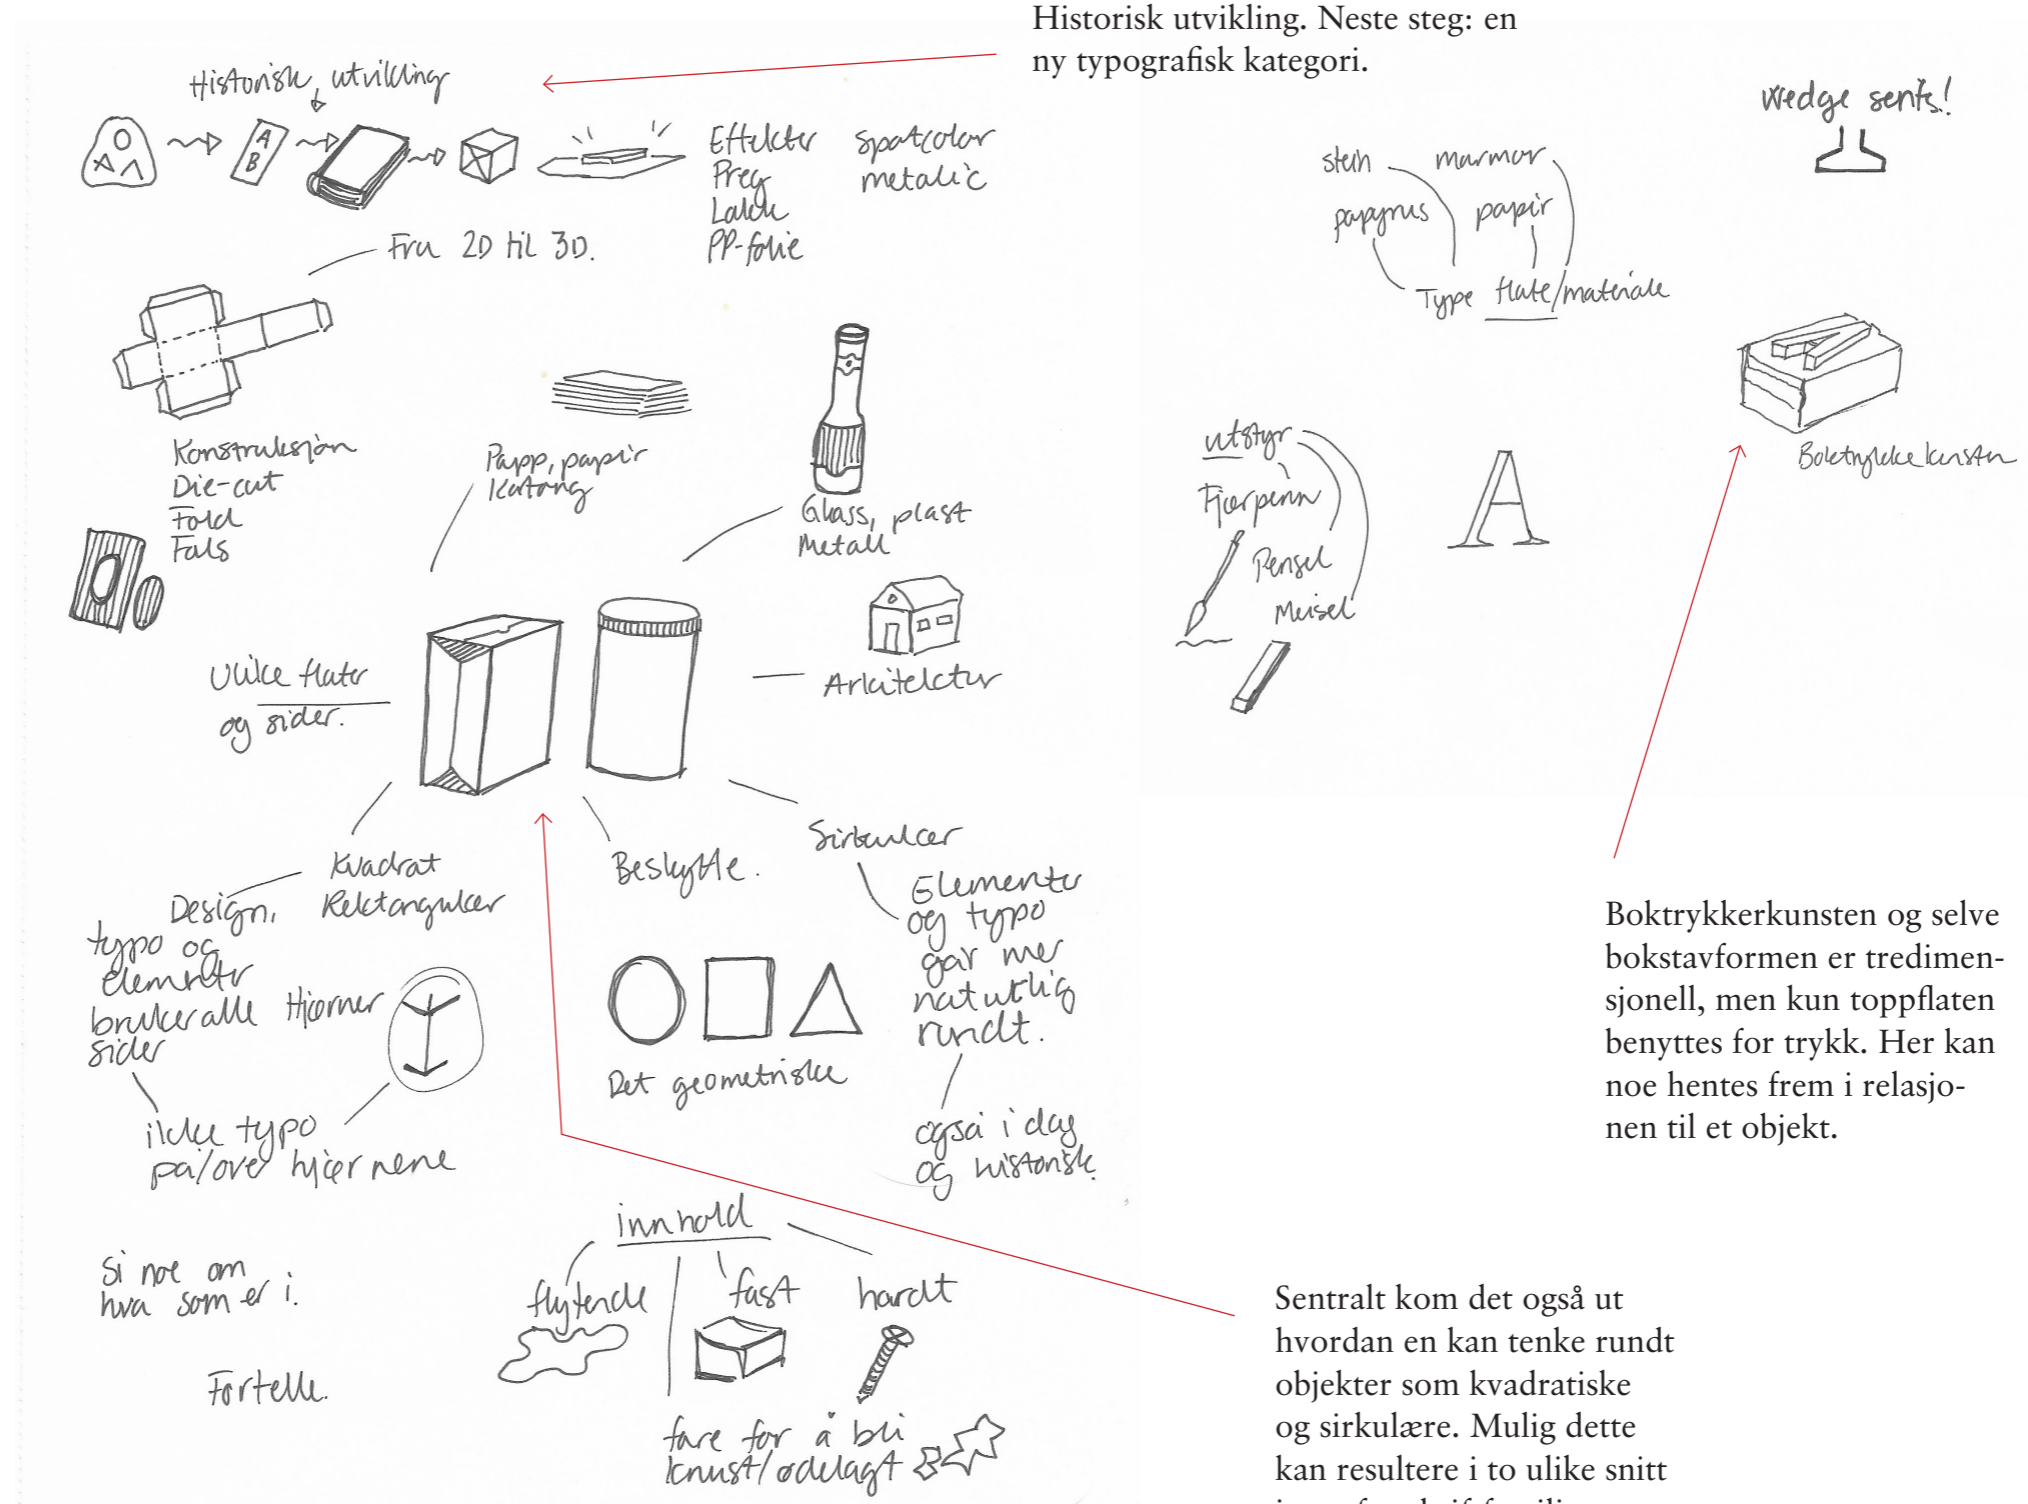 Historisk utvikling. Neste steg: en
ny typografisk kategori.
Historisk utvikling
A
B
Effekter
Preg
Lakk
PP-folie
spotcolor
metalic
Fra 2D til 3D.
Konstruksjon
Die-cut
Fold
Fals
Papp, papir
Kartong
Glass, plast
Metall
Arkitektur
Ulike flater
og sider.
Kvadrat
Rektangulær
Design,
typo og
elementer
bruker alle
sider
Hjørner
ikke typo
på/over hjørnene
Beskytte.
Sirkulær
Elementer
og typo
går mer
naturlig
rundt.
også i dag
og historisk.
Det geometriske
innhold
flytende
fast
hardt
fare for å bli
knust/ødelagt
Si noe om
hva som er i.
Fortelle.
Wedge serifs!
stein
marmor
papyrus
papir
Type flate/materiale
utstyr
Fjærpenn
Pensel
Meisel
A
Boktrykkekunsten
Boktrykkerkunsten og selve
bokstavformen er tredimen-
sjonell, men kun toppflaten
benyttes for trykk. Her kan
noe hentes frem i relasjo-
nen til et objekt.
Sentralt kom det også ut
hvordan en kan tenke rundt
objekter som kvadratiske
og sirkulære. Mulig dette
kan resultere i to ulike snitt